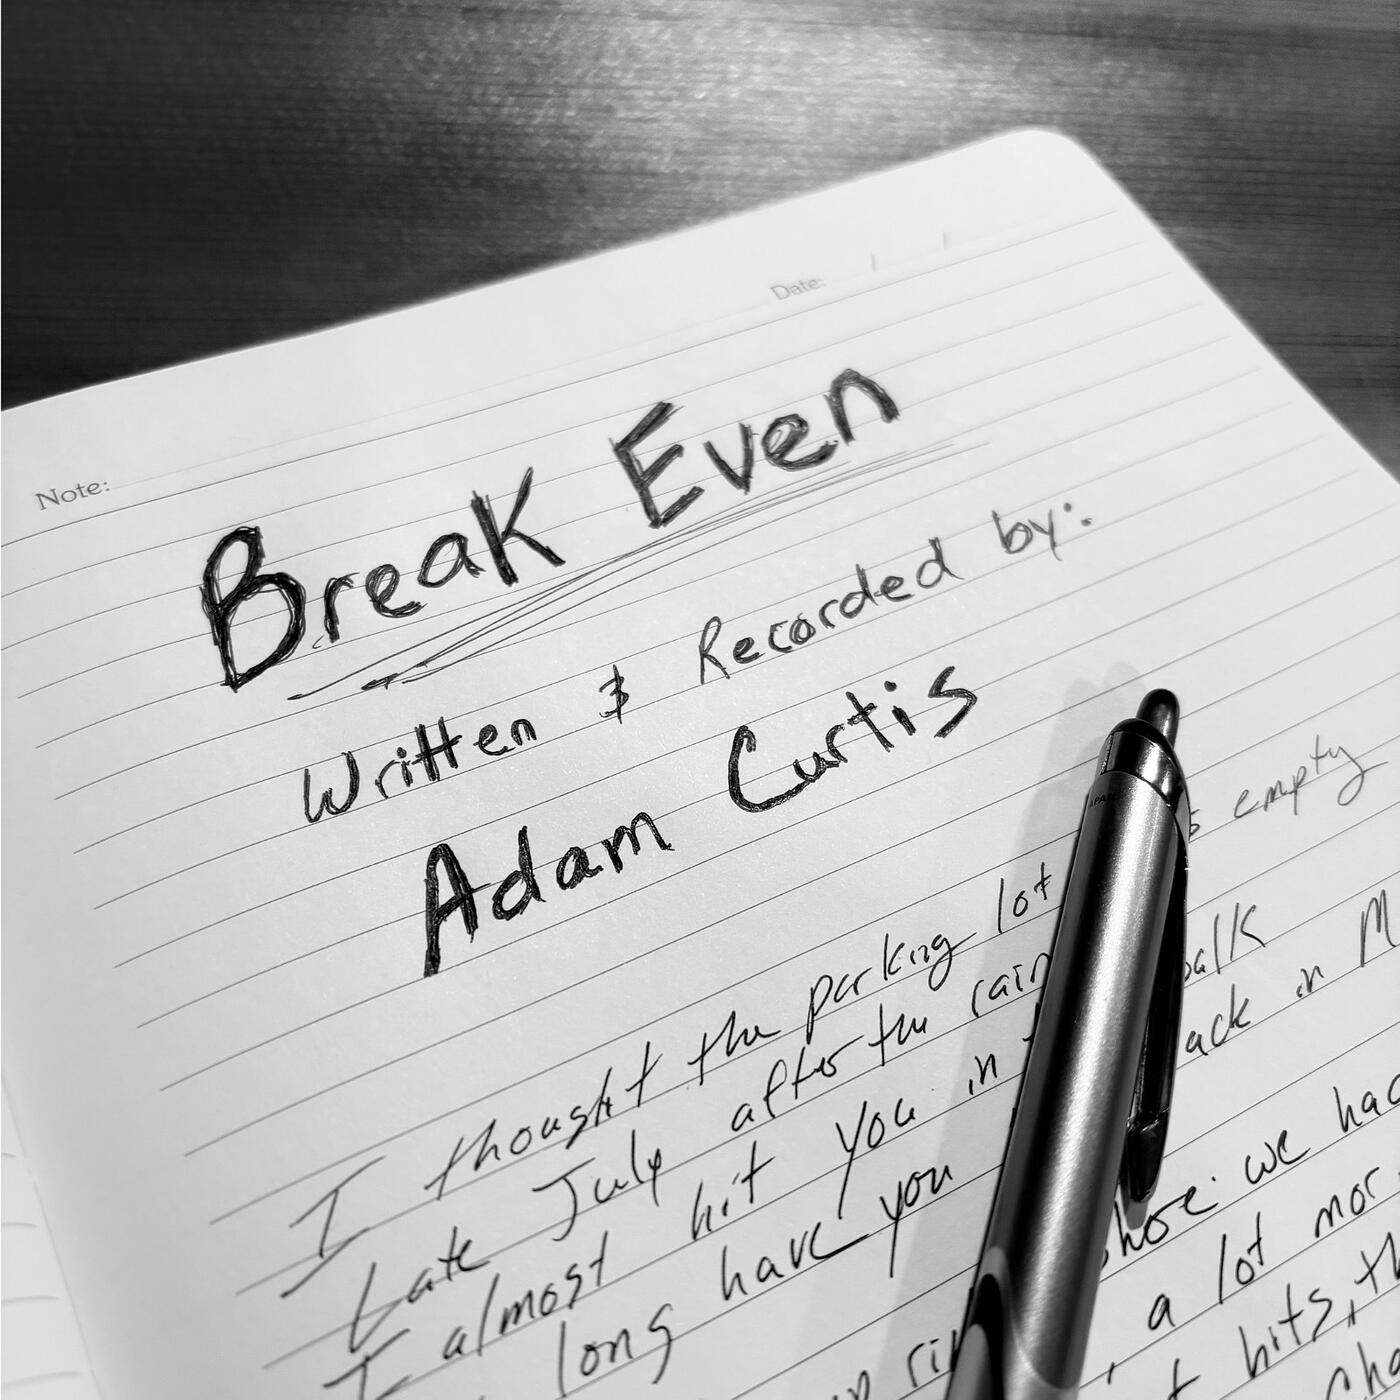 Date: / /
Note:
Break Even
Written & Recorded by:
Adam Curtis
I thought the parking lot empty
Late July after the rain
I almost hit you in back in
long have you
we
a lot
hits,